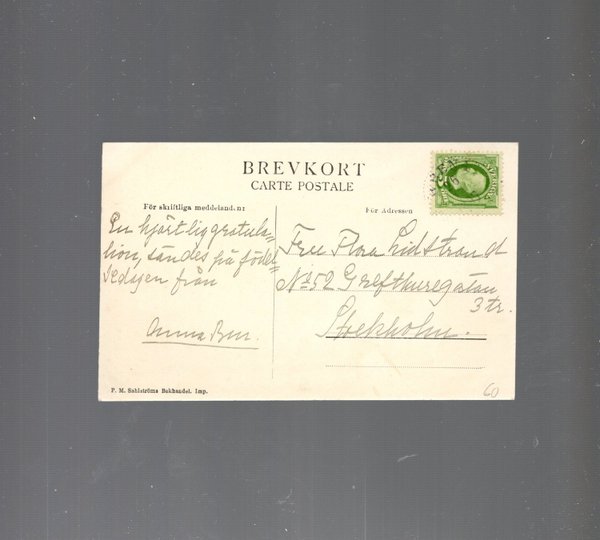 BREVKORT
CARTE POSTALE
För skriftliga meddeland.nr
För Adressen
En hjärtlig gratula-
tion, sändes på födel-
sedagen från
Anna Bru.
Fru Flora Lidstrand
No 52 Grefthuregatan
3 tr.
Stockholm.
P. M. Sahlströms Bokhandel. Imp.
60
SVERIGE